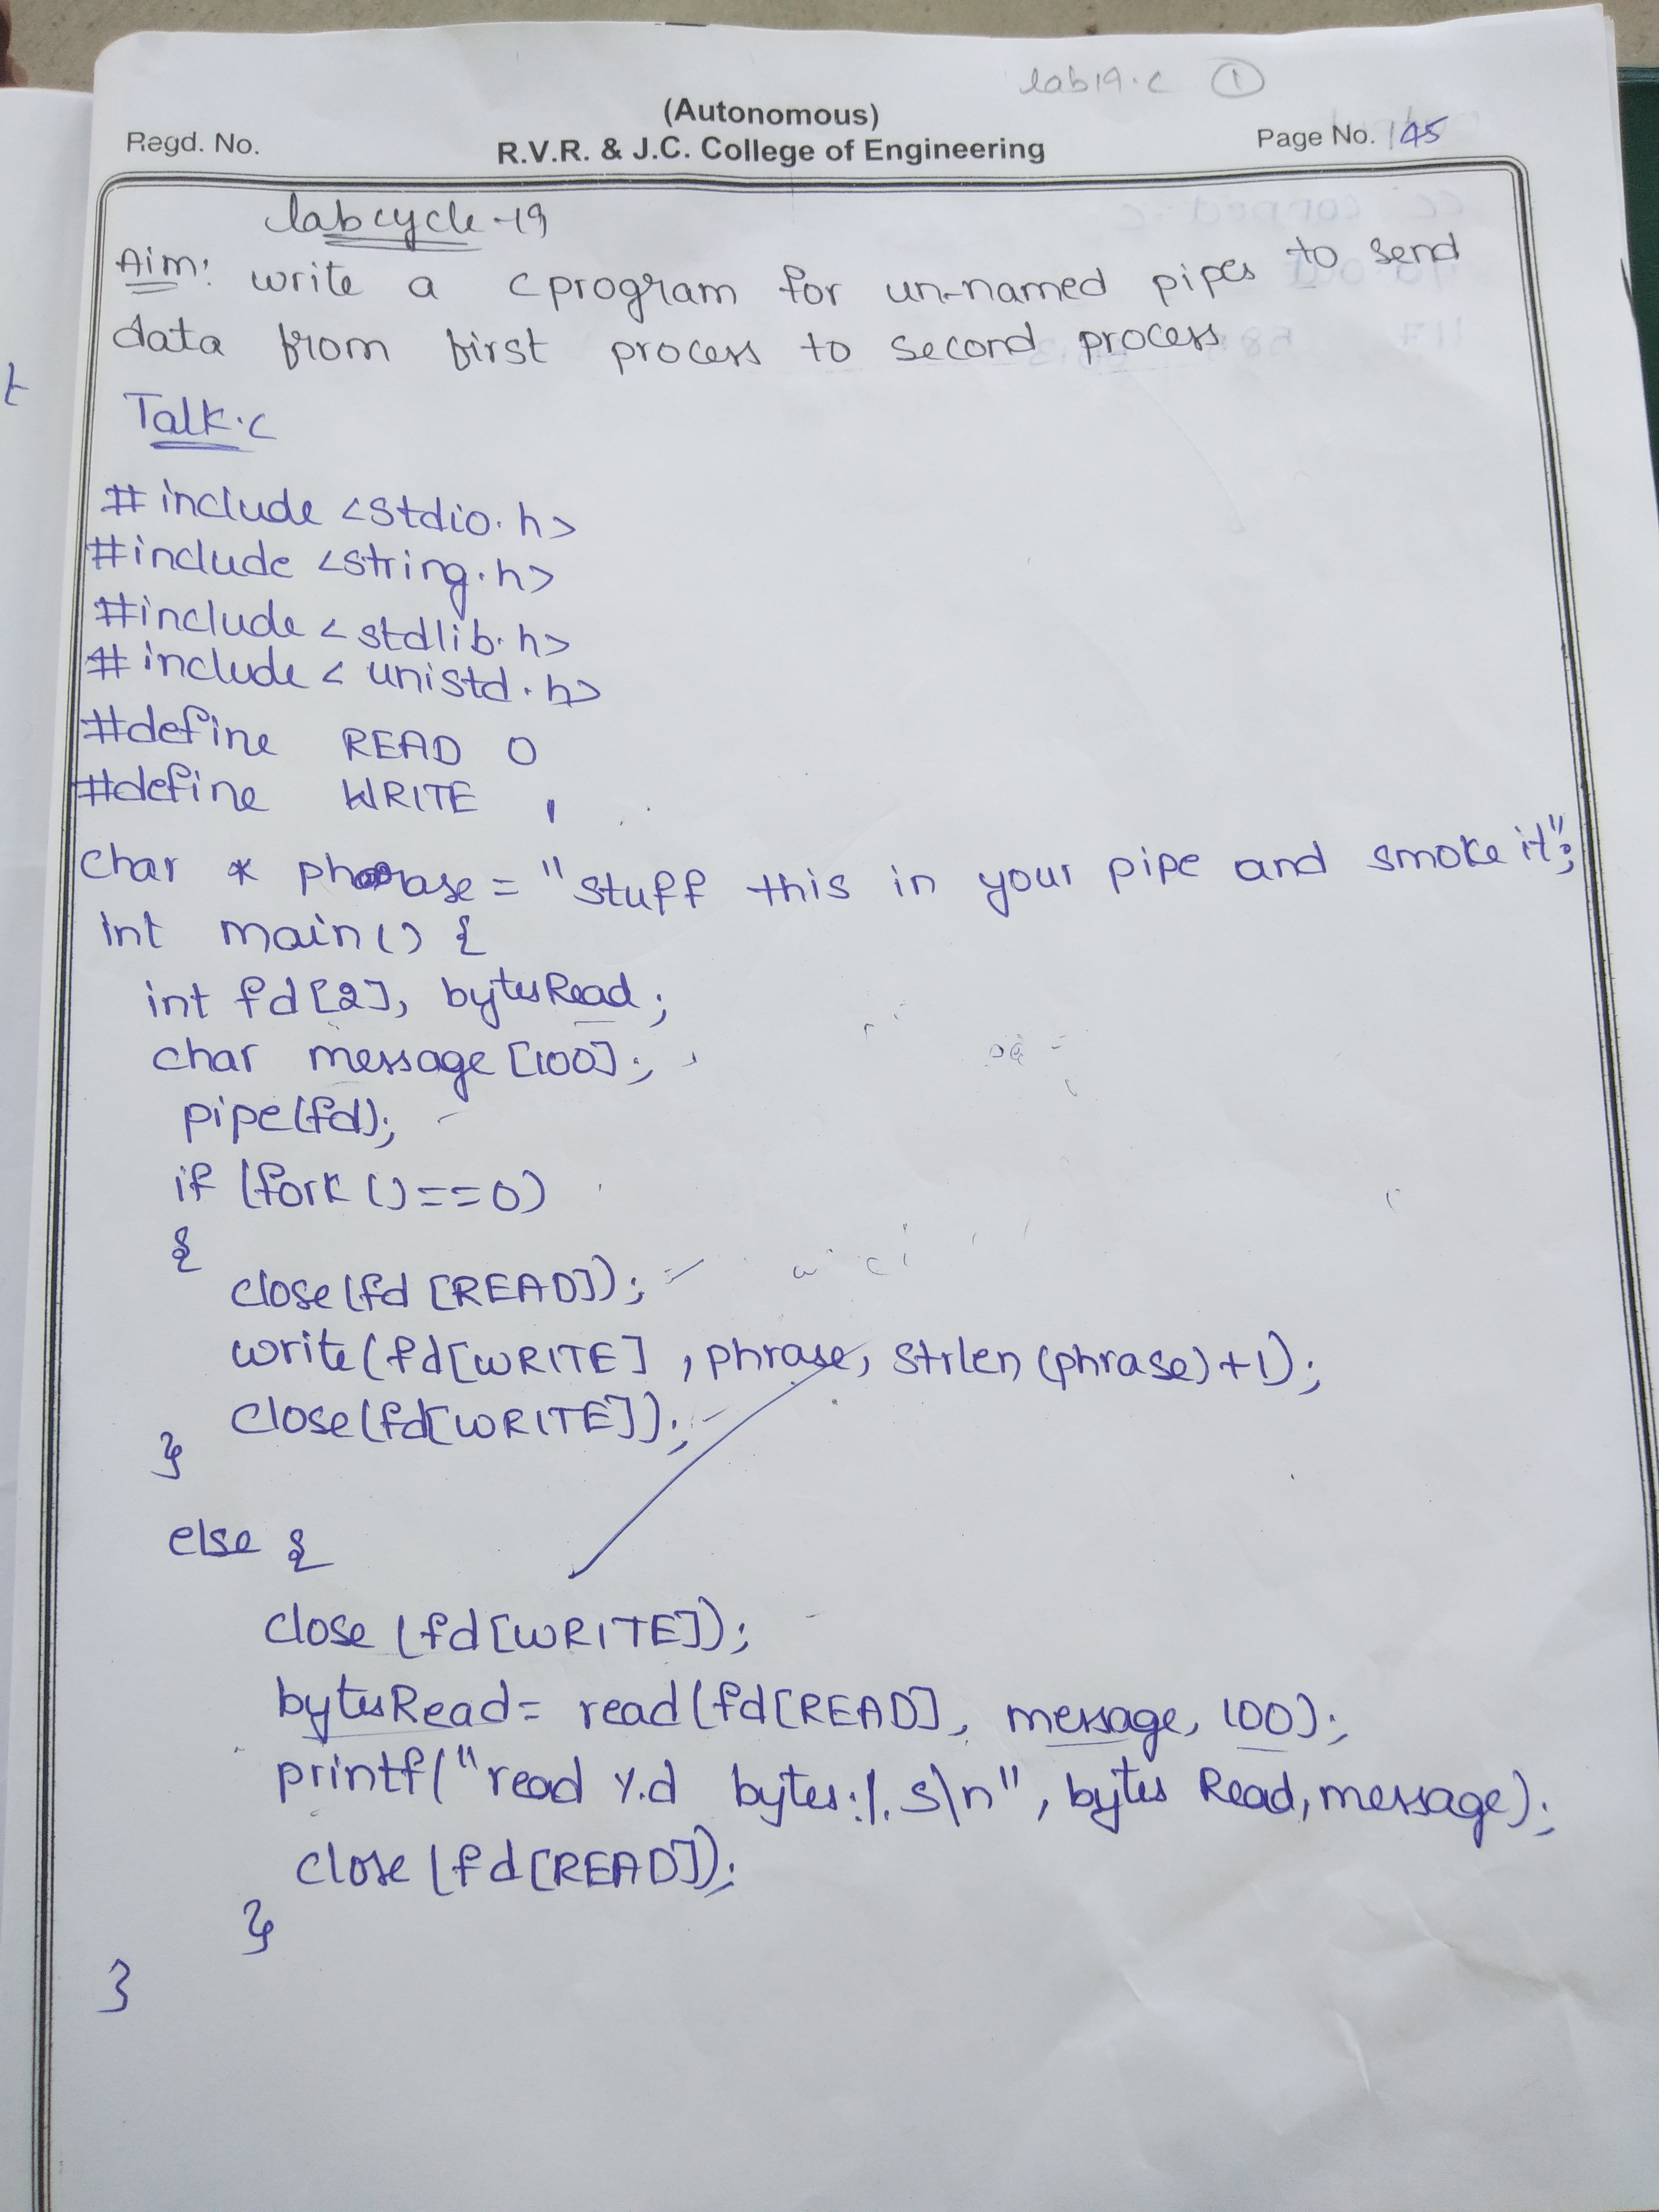 lab19.c ①
(Autonomous)
Regd. No. R.V.R. & J.C. College of Engineering Page No. 145
labcycle-19
Aim: write a c program for un-named pipes to send
data from first process to second process
Talk.c
#include <stdio.h>
#include <string.h>
#include <stdlib.h>
#include <unistd.h>
#define READ 0
#define WRITE 1
char * phrase = "stuff this in your pipe and smoke it";
int main() {
int fd[2], bytesRead;
char message[100];
pipe(fd);
if (fork()==0)
{
close(fd[READ]);
write(fd[WRITE], phrase, strlen(phrase)+1);
close(fd[WRITE]);
}
else {
close(fd[WRITE]);
bytesRead = read(fd[READ], message, 100);
printf("read %d bytes:%s\n", bytes Read, message);
close(fd[READ]);
}
}